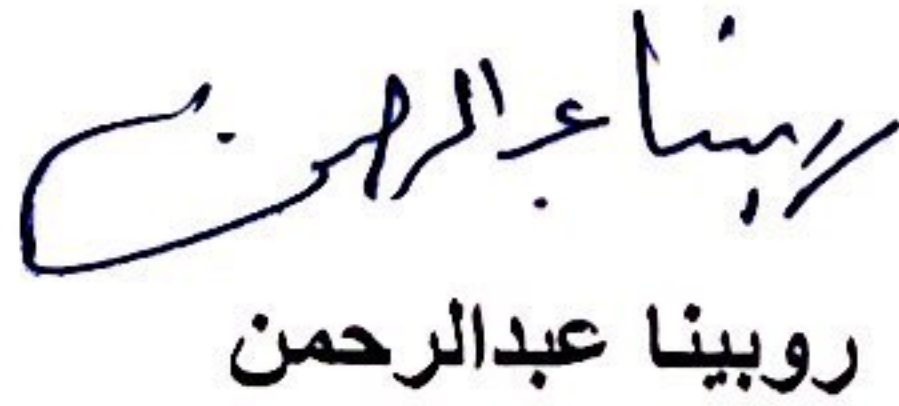 روبینا عبدالرحمن
روبینا عبدالرحمن